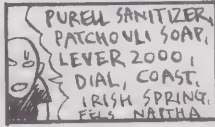 PURELL SANITIZER,
PATCHOULI SOAP,
LEVER 2000,
DIAL, COAST,
IRISH SPRING,
FELS NAPTHA